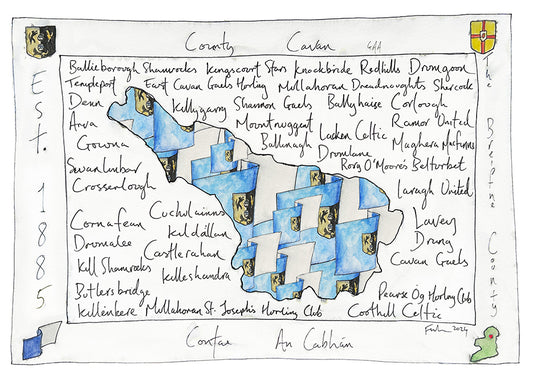 County Cavan GAA
Est. 1885
The Breifne County
Bailieborough Shamrocks Kingscourt Stars Knockbride Redhills Drumgoon
Templeport East Cavan Gaels Hurling Mullahoran Dreadnoughts Shercock
Denn Killygarry Shannon Gaels Ballyhaise Corlough
Arva Mountnugent Lacken Celtic Ramor United
Gowna Ballinagh Drumlane Maghera MacFinns
Swanlinbar Rory O'Moore's Belturbet
Crosserlough Laragh United
Cornafean Cuchulainns Lavey
Drumalee Kildallan Drung
Kill Shamrocks Castlerahan Cavan Gaels
Butlersbridge Killeshandra Pearse Óg Hurling Club
Killinkere Mullahoran St. Joseph's Hurling Club Cootehill Celtic
2024
Contae An Cabhán